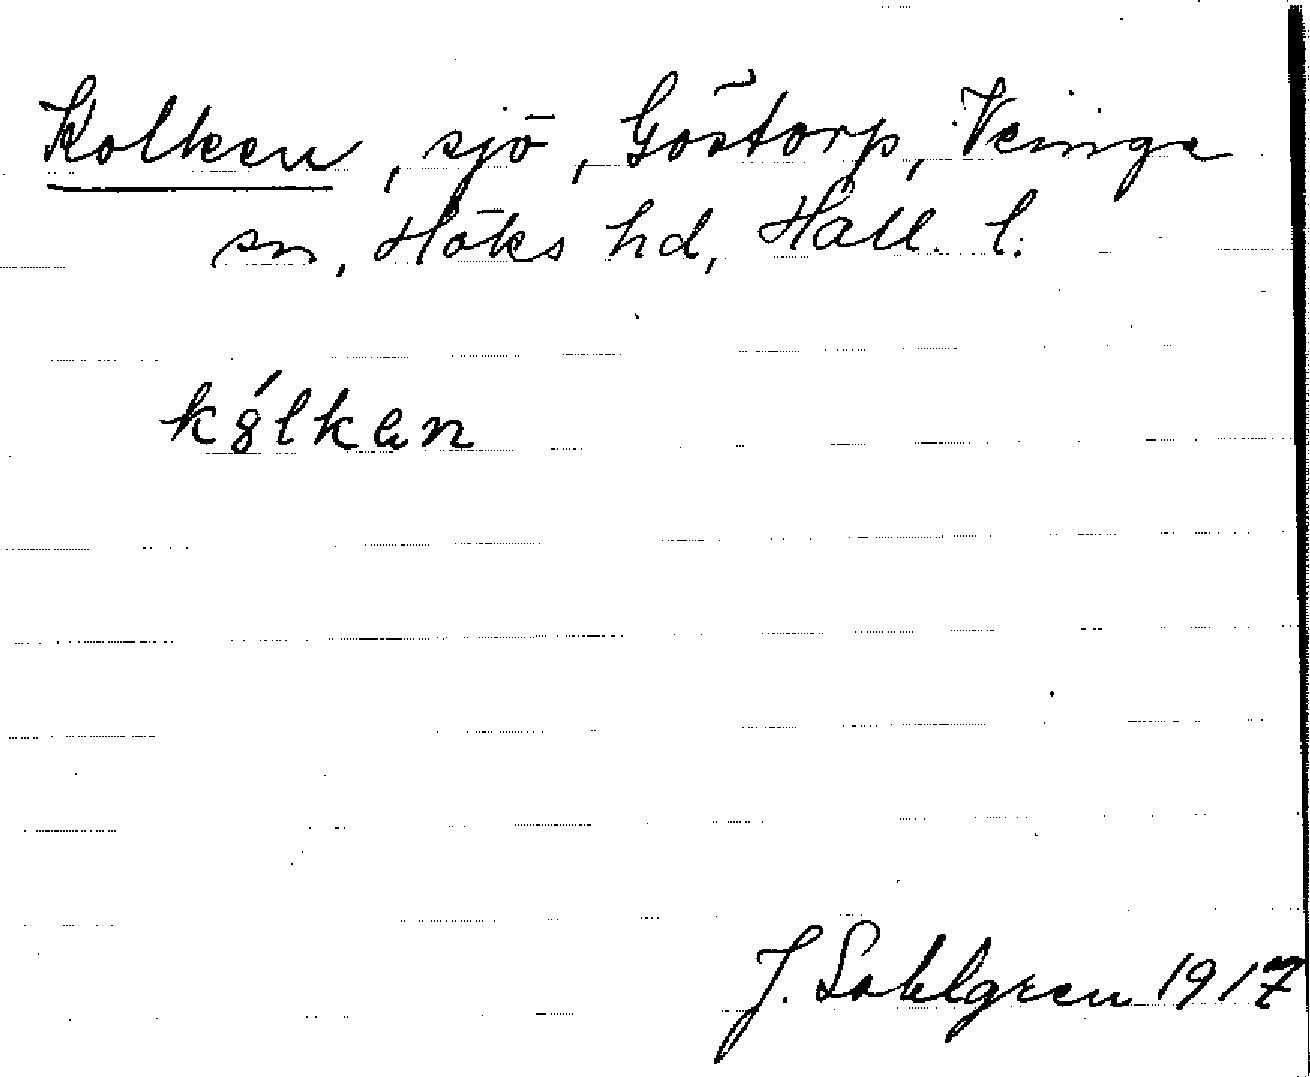 Kolken, sjö, Göstorp, Veinge
sn, Höks hd, Hall. l.
kó̤lkən
J. Sahlgren 1917